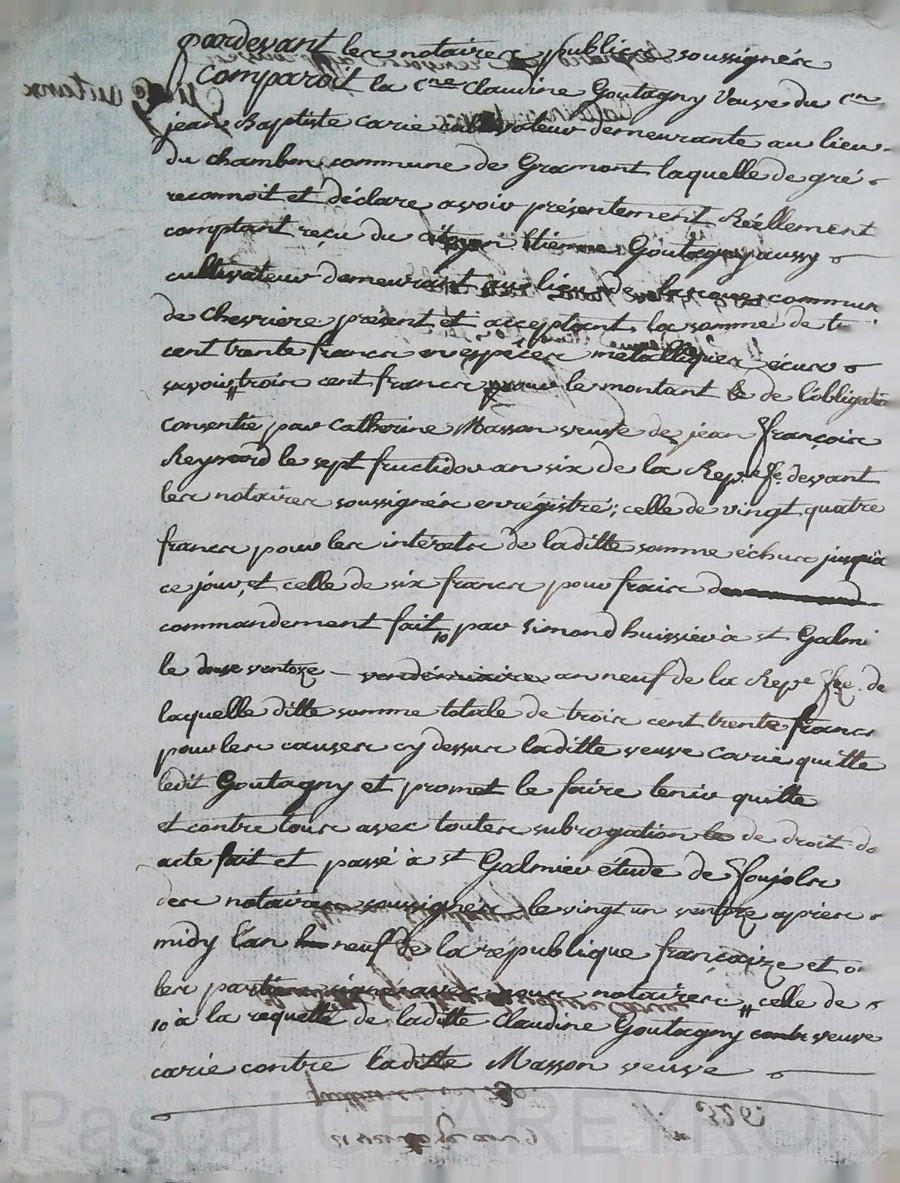 pardevant les notaires publics soussignés
comparoit la cne Claudine Goutagny Veuve du cen
jean Baptiste carie cultivateur demeurante au lieu
du chambon commune de Gramont laquelle de gré
reconnoit et déclare avoir présentement Réellement
comptant reçu du citoyen Etienne Goutagny aussy
cultivateur demeurant au lieu de commune
de Chevriere présent et acceptant la somme de
cent trente francs en espèces métalliques écus
savoir trois cent francs pour le montant de l'obligation
consentie par catherine Masson veuve de jean françois
Reynard le sept fructidor an six de la Repe fse devant
les notaires soussignés enrégistré; celle de vingt quatre
francs pour les interets de laditte somme échus jusqu'à
ce jour, et celle de six francs pour frais de
commandement fait 10 par Simond huissier à st Galmi
le douze ventoze – vendémiaire an neuf de la Repe fse. de
laquelle ditte somme totale de trois cent trente francs
pour les causes cy dessus laditte veuve carie quitte
ledit Goutagny et promet le faire tenir quitte
et contre tous avec toutes subrogation de droit do
acte fait et passé à st Galmier etude de foujols
des notaires soussignés le vingt un ventoze après
midy l'an neuf de la république françaize et
les parties signé avec nous notaires celle de
10 à la requette de laditte Claudine Goutagny veuve
carie contre laditte Masson veuve
326
Pascal CHAREYRON